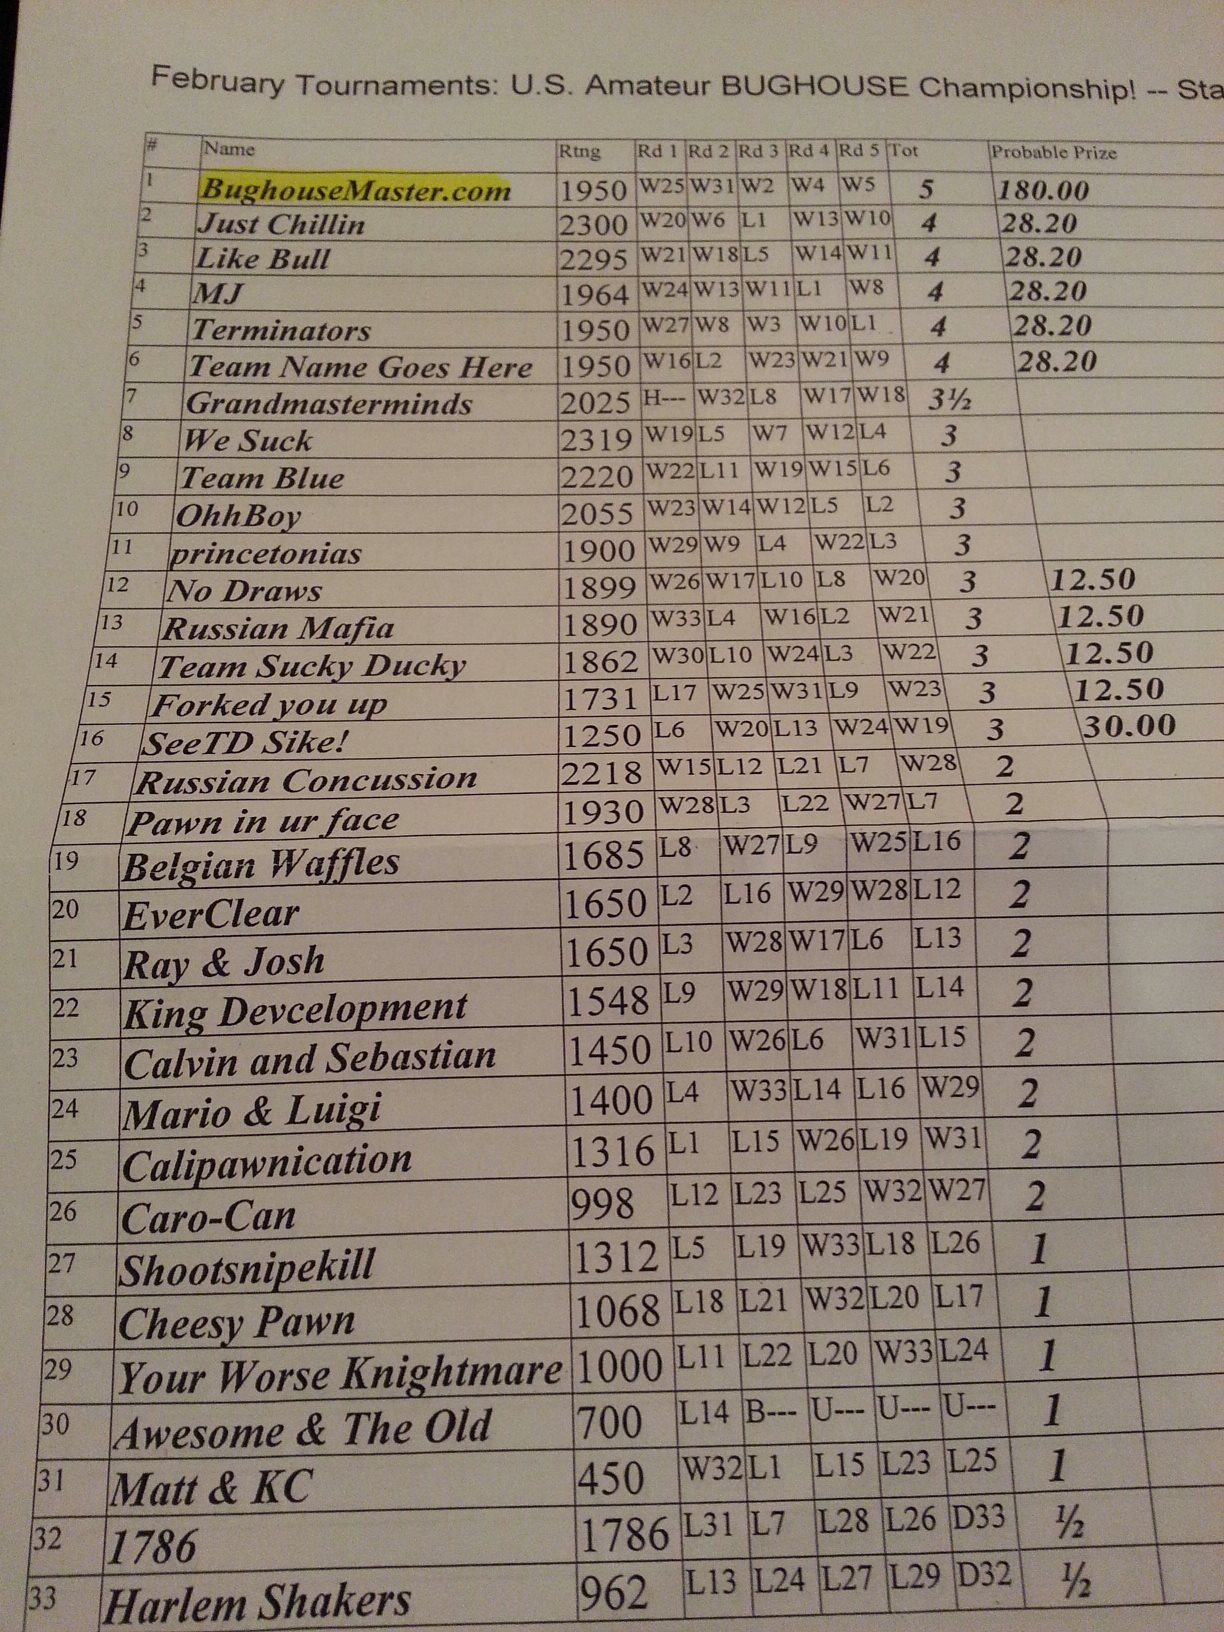 February Tournaments: U.S. Amateur BUGHOUSE Championship! -- Sta
# Name Rtng Rd 1 Rd 2 Rd 3 Rd 4 Rd 5 Tot Probable Prize
1 BughouseMaster.com 1950 W25 W31 W2 W4 W5 5 180.00
2 Just Chillin 2300 W20 W6 L1 W13 W10 4 28.20
3 Like Bull 2295 W21 W18 L5 W14 W11 4 28.20
4 MJ 1964 W24 W13 W11 L1 W8 4 28.20
5 Terminators 1950 W27 W8 W3 W10 L1 4 28.20
6 Team Name Goes Here 1950 W16 L2 W23 W21 W9 4 28.20
7 Grandmasterminds 2025 H--- W32 L8 W17 W18 3½
8 We Suck 2319 W19 L5 W7 W12 L4 3
9 Team Blue 2220 W22 L11 W19 W15 L6 3
10 OhhBoy 2055 W23 W14 W12 L5 L2 3
11 princetonias 1900 W29 W9 L4 W22 L3 3
12 No Draws 1899 W26 W17 L10 L8 W20 3 12.50
13 Russian Mafia 1890 W33 L4 W16 L2 W21 3 12.50
14 Team Sucky Ducky 1862 W30 L10 W24 L3 W22 3 12.50
15 Forked you up 1731 L17 W25 W31 L9 W23 3 12.50
16 SeeTD Sike! 1250 L6 W20 L13 W24 W19 3 30.00
17 Russian Concussion 2218 W15 L12 L21 L7 W28 2
18 Pawn in ur face 1930 W28 L3 L22 W27 L7 2
19 Belgian Waffles 1685 L8 W27 L9 W25 L16 2
20 EverClear 1650 L2 L16 W29 W28 L12 2
21 Ray & Josh 1650 L3 W28 W17 L6 L13 2
22 King Devcelopment 1548 L9 W29 W18 L11 L14 2
23 Calvin and Sebastian 1450 L10 W26 L6 W31 L15 2
24 Mario & Luigi 1400 L4 W33 L14 L16 W29 2
25 Calipawnication 1316 L1 L15 W26 L19 W31 2
26 Caro-Can 998 L12 L23 L25 W32 W27 2
27 Shootsnipekill 1312 L5 L19 W33 L18 L26 1
28 Cheesy Pawn 1068 L18 L21 W32 L20 L17 1
29 Your Worse Knightmare 1000 L11 L22 L20 W33 L24 1
30 Awesome & The Old 700 L14 B--- U--- U--- U--- 1
31 Matt & KC 450 W32 L1 L15 L23 L25 1
32 1786 1786 L31 L7 L28 L26 D33 ½
33 Harlem Shakers 962 L13 L24 L27 L29 D32 ½